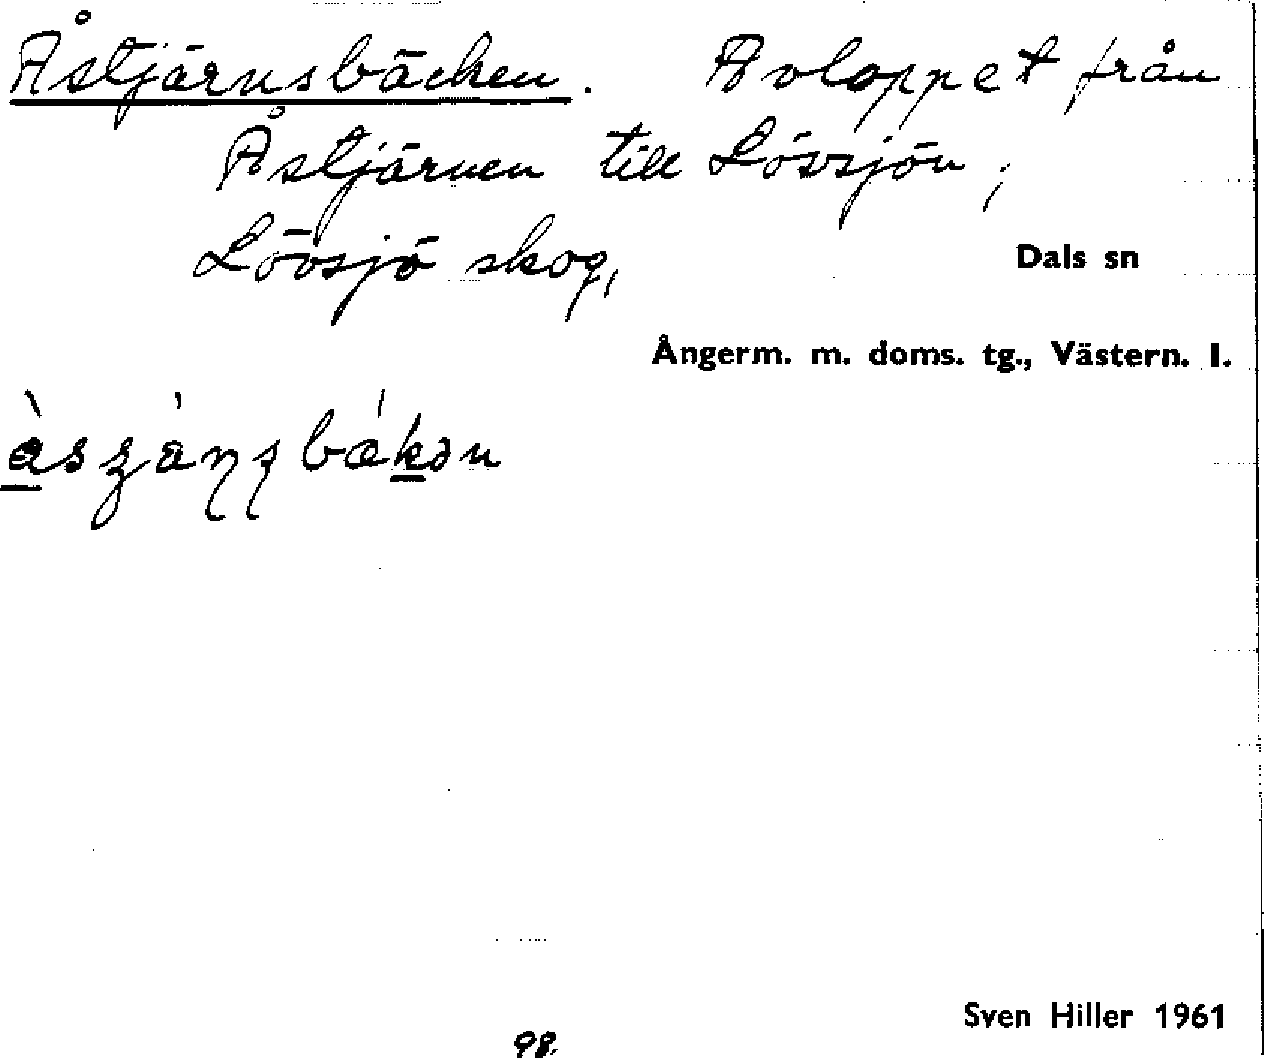 Åstjärnsbäcken. Avloppet från
Åstjärnen till Lövsjön,
Lövsjö skog,
Dals sn
Ångerm. m. doms. tg., Västern. l.
Sven Hiller 1961
98.